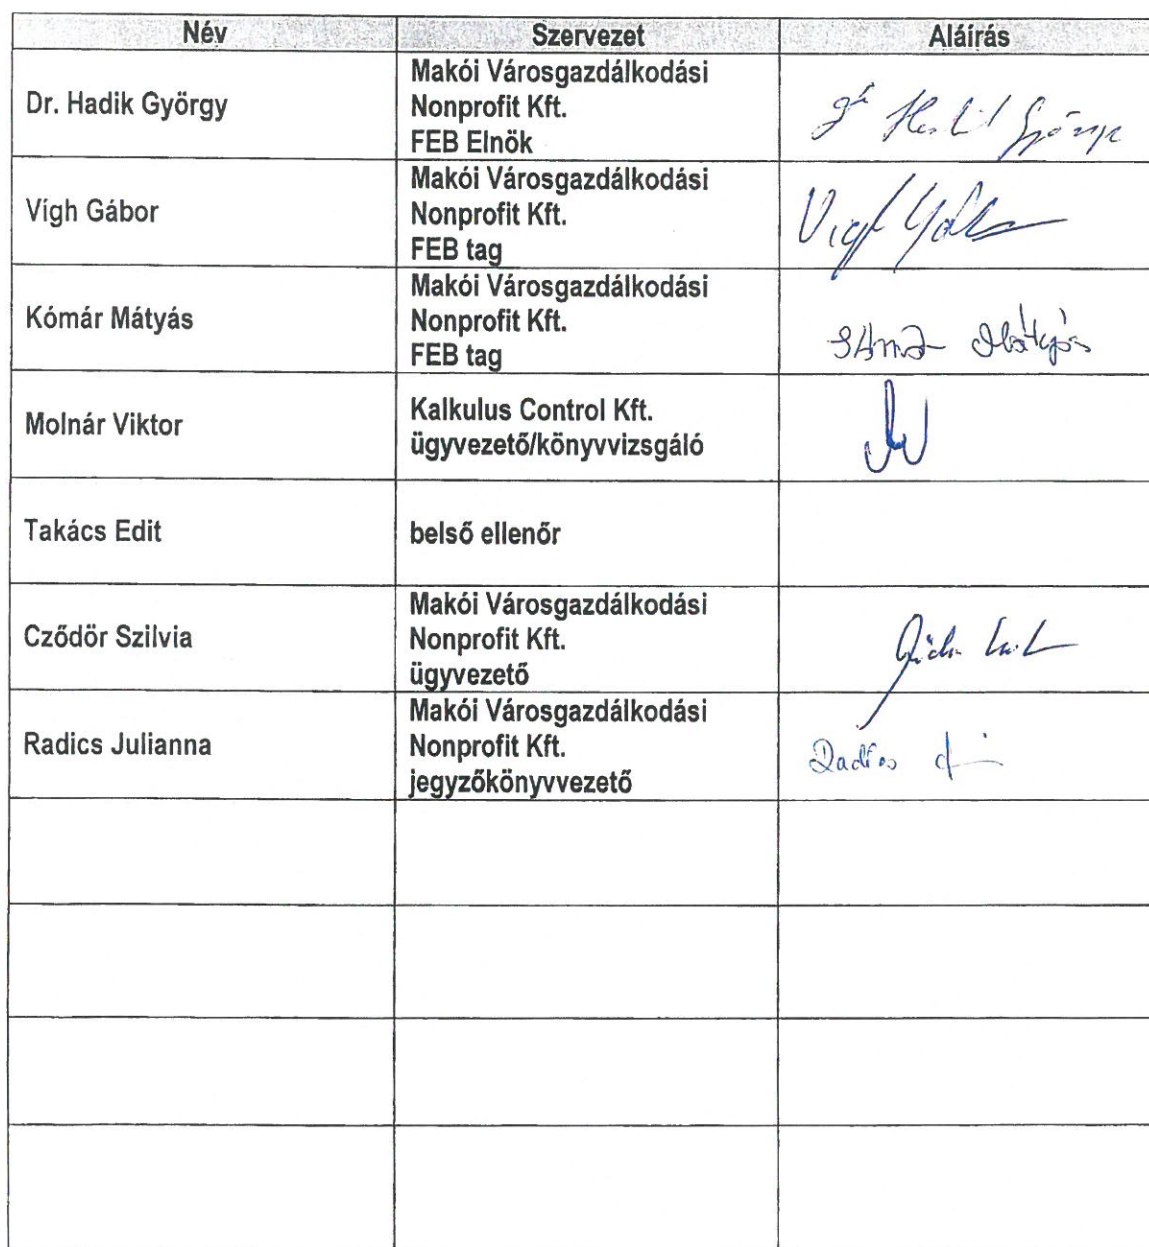 Név Szervezet Aláírás
Dr. Hadik György
Makói Városgazdálkodási
Nonprofit Kft.
FEB Elnök
Vígh Gábor
Makói Városgazdálkodási
Nonprofit Kft.
FEB tag
Kómár Mátyás
Makói Városgazdálkodási
Nonprofit Kft.
FEB tag
Mátyás
Molnár Viktor
Kalkulus Control Kft.
ügyvezető/könyvvizsgáló
Takács Edit
belső ellenőr
Cződör Szilvia
Makói Városgazdálkodási
Nonprofit Kft.
ügyvezető
Radics Julianna
Makói Városgazdálkodási
Nonprofit Kft.
jegyzőkönyvvezető
Radics